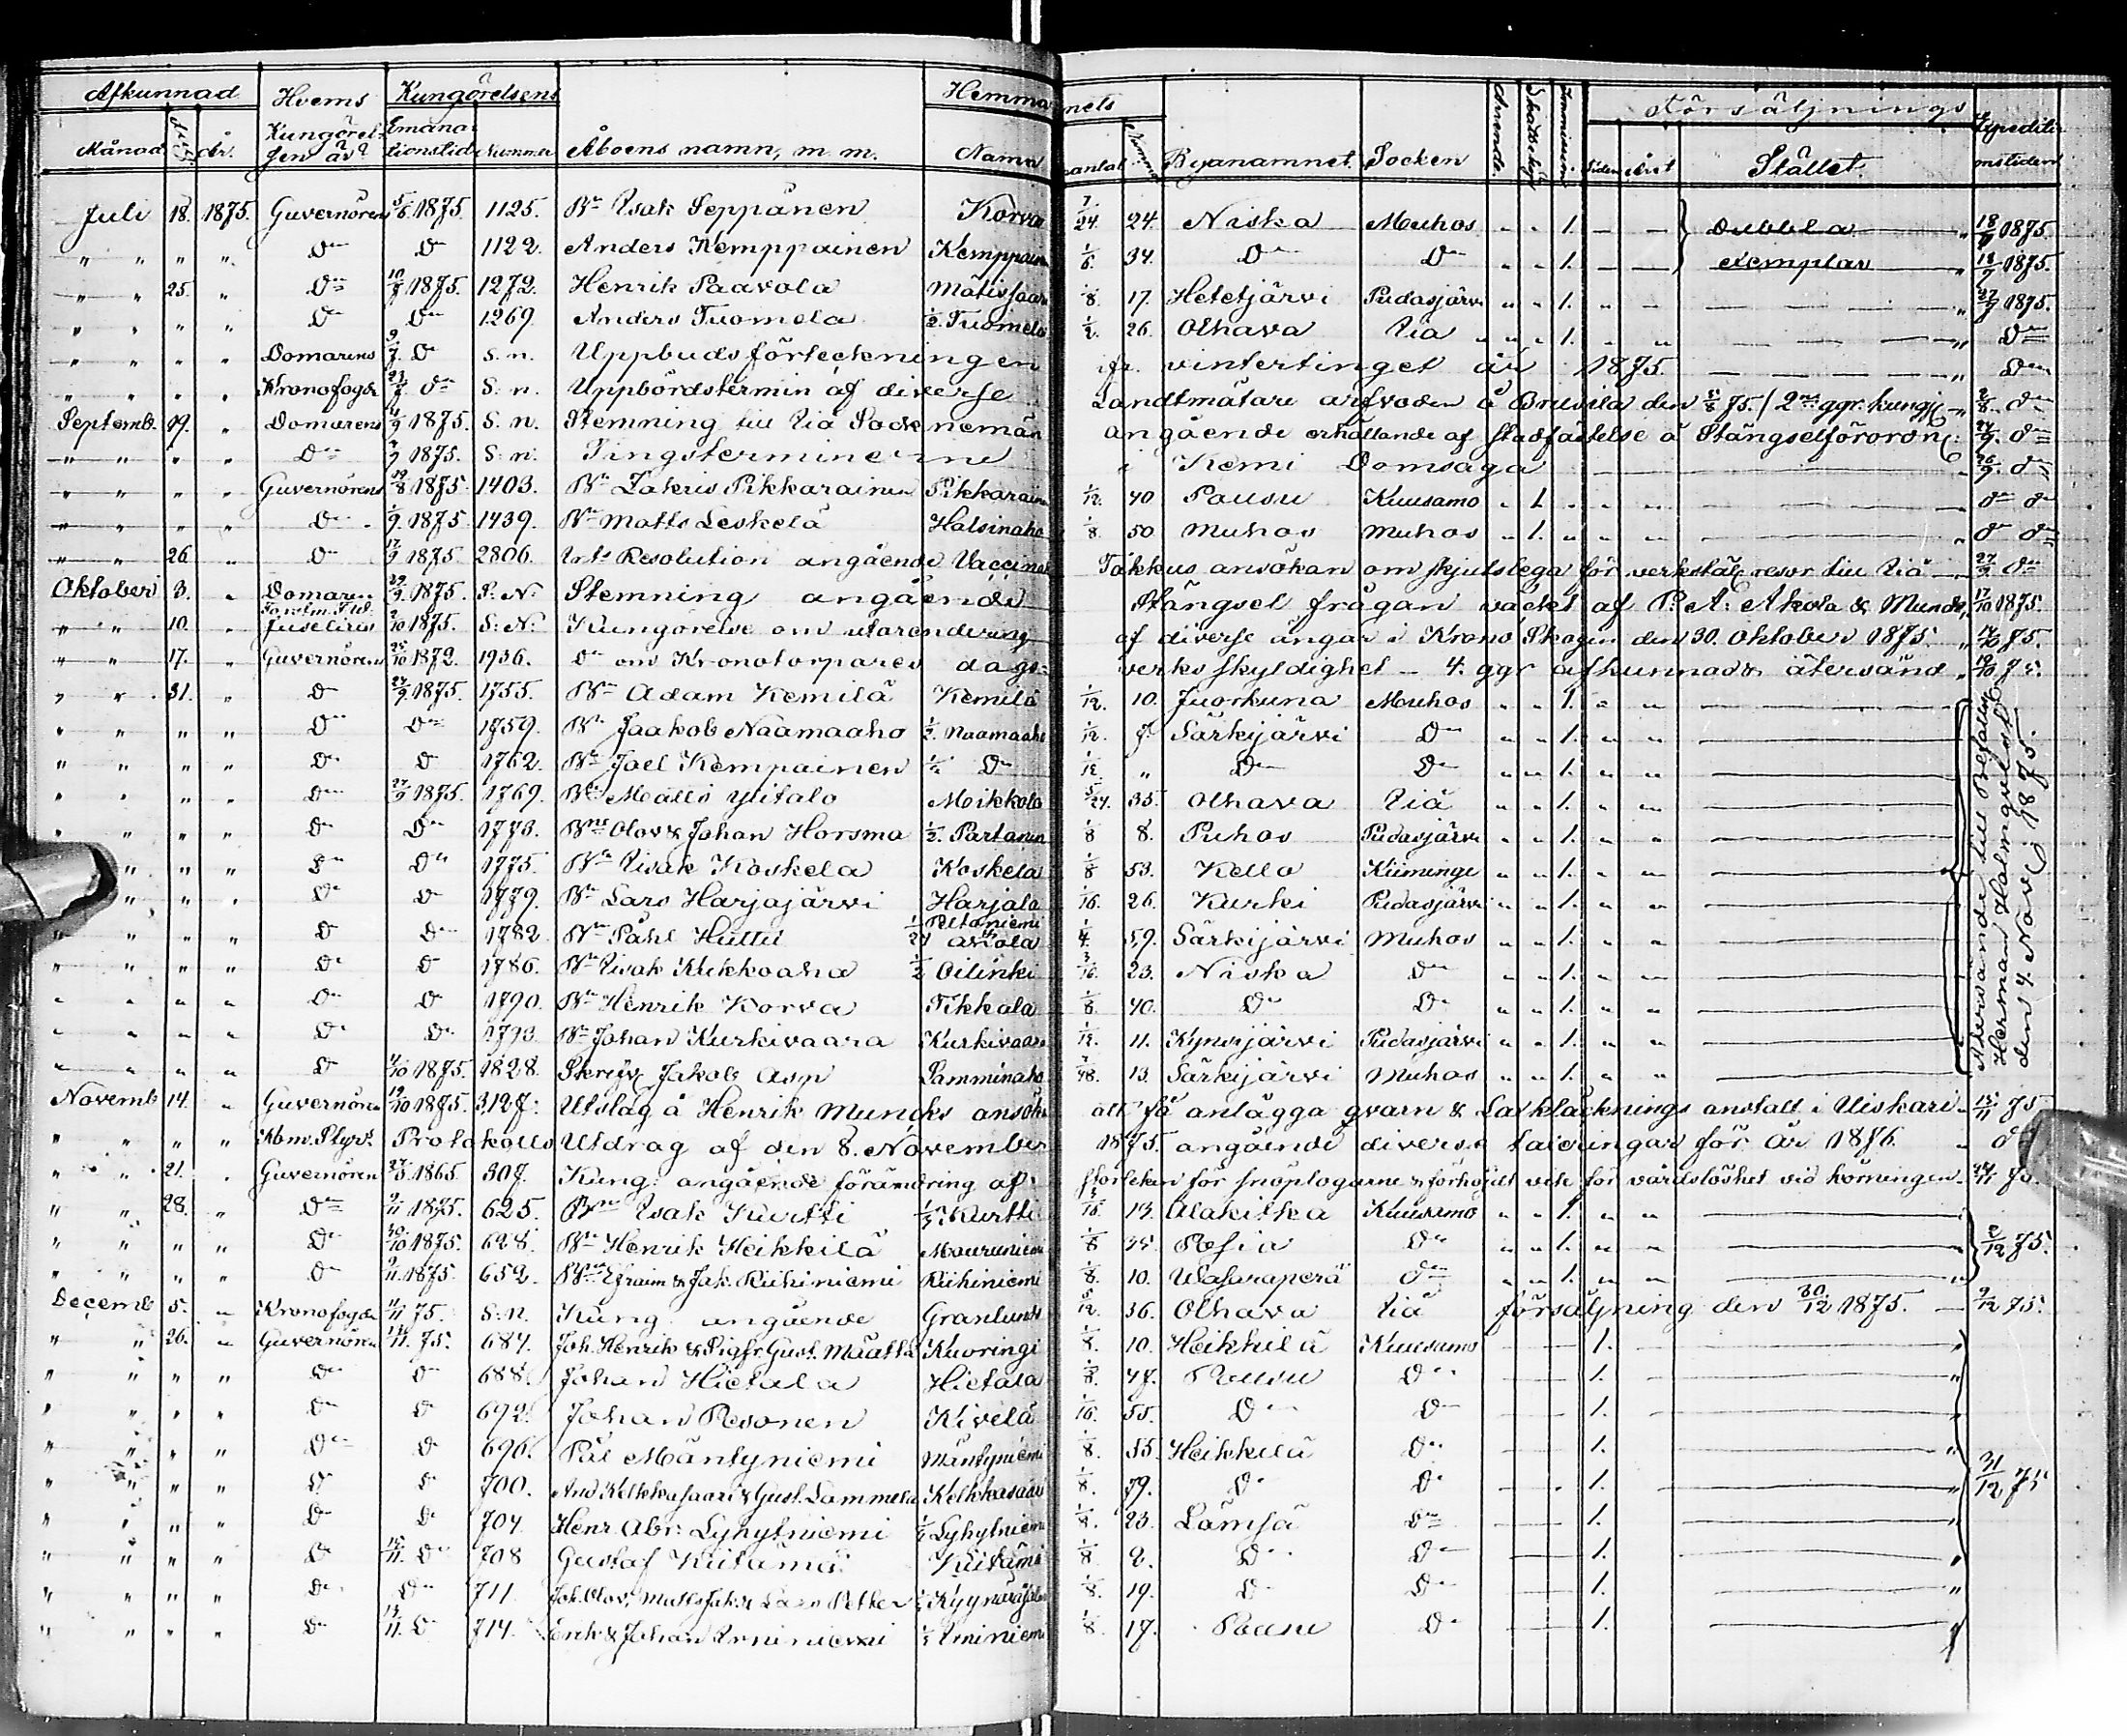 Afkunnad Hvems Kungörelsens Hemma nets Försäljnings Expediti
Månad År. Kungörel- sen är? Emana- tionstid Nummer Åboens namn, m. m. Namn antal Byanamnet. Socken Arrende. Immission Tiden Året Stället. onstiden
Juli 18. 1875. Guvernörens 5/6 1875. 1125. Bn Isak Seppänen Korva 7/24 24. Niska Muhos " " 1. — — Dubbla " 18/7 1875.
" " " " Do Do 1122. Anders Kemppainen Kemppain 1/6. 34. Do Do " " 1. — — exemplar " 18/7 1875.
" " 25. " Do 10/7 1875. 1272. Henrik Paavola Mätisfaar 1/8. 17. Hetetjärvi Pudasjärvi " " 1. " " " 27/7 1875.
" " " " Do Do 1269. Anders Tuomela 1/2. Tuomela 1/2. 26. Olhava Iiå " " 1. " " " Do
" " " " Domarens 9/7. Do S. n. Uppbudsförteckningen fr. vintertinget år 1875. " Do
" " " " Kronofogde 23/7. Do S. n. Uppbördstermin af diverse Landtmätare arfvoden å Brusila den 5/8 75. / 2ne ggr. kungj. " 2/8. Do
Septemb. 19. " Domarens 4/9 1875. S. n. Stemning till Iiå Socknemän angående erhållande af stadfästelse å Stängselförordn. 24/9. Do
" " " " Do 7/9 1875. S. n. Tingsterminerne i Kemi Domsaga 26/9. Do
" " " " Guvernörens 29/8 1875. 1403. Bn Zakris Pikkarainen Pikkarain 1/12. 40. Pousu Kuusamo " 1. " " " Do Do
" " " " Do 1/9. 1875. 1439. Bn Matts Leskelä Halsinaho 1/8. 50. Muhos Muhos " 1. " " " " Do Do
" " 26. " Do 17/9 1875. 2806. Resolution angående Vaccinat Takkus ansökan om skjutslega för verkstälg resor till Iiå 27/9 Do
Oktober 3. " Domaren 29/9. 1875. S. N. Stemning angående Stängsel frågan väckt af P. A. Akola & Mund 17/10 1875.
" " 10. " Juselius 2/10 1875. S. N. Kungörelse om utarendering af diverse ängar i Krono Skogen den 30. Oktober 1875. " 14/10 75.
" " 17. " Guvernören 25/10 1872. 1936. Do om Kronotorpares dags- verks skyldighet — 4. ggr afkunnad & återsänd " 19/10 75.
" " 31. " Do 24/9. 1875. 1755. Bn Adam Kemilä Kemilä 1/12. 10. Juorkuna Muhos " " 1. " "
" " " " Do Do 1759. Bn Jaakob Naamaaho 1/2. Naamaaho 1/12. 7. Särkijärvi Do " " 1. " "
" " " " Do Do 1762. Bn Joel Kempainen 1/2 Do 1/12. " Do Do " " 1. " "
" " " " Do 27/9 1875. 1769. Bn Matts Ylitalo Meikkola 5/24. 35. Olhava Iiå " " 1. " "
" " " " Do Do 1773. Bne Olov & Johan Horsma 1/2. Partanen 1/8 8. Puhos Pudasjärvi " " 1. " "
" " " Do Do 1775. Bn Isak Koskela Koskela 1/8 53. Kello Kiiminge " " 1. " "
" " " Do Do 1779. Bn Lars Harjajärvi Harjala 1/16. 26. Kurki Pudasjärvi " " 1. " "
" " " " Do Do 1782. Bn Påhl Huttu 1/24 Peltoniemi 1/4. 59. Särkijärvi Muhos " " 1. " "
" " " " Do Do 1786. Bn Isak Kukkoaha 1/2 Oilinki 3/16. 23. Niska Do " " 1. " "
" " " " Do Do 1790. Bn Henrik Korva Tikkala 1/8. 40. Do Do " " 1. " "
" " " " Do Do 1793. Bn Johan Kurkivaara Kurkivaara 1/12. 11. Kynsijärvi Pudasjärvi " " 1. " "
" " " " Do 4/10 1875. 1828. Jakob Asp Lamminaho 7/48. 13. Särkijärvi Muhos " " 1. " "
Återsände till
Herman Holmqvist
den 4. Nov. 1875.
Novemb 14. " Guvernören 19/10 1875. 3,127. Utslag å Henrik Muncks ansök att få anlägga qvarn & anstalt i Uiskari 15/11 75
" " " " Kbm. Styr. Protokolls Utdrag af den 8. November 1875. angående diverse taxeringar för år 1876. " Do
" " 21. " Guvernören 27/5 1865. 307. Kung. angående förändring af storleken för snöplogarne & förhöjdt vite för vårdslöshet vid körningen.
" " 28. " Do 9/11 1875. 625. Bne Isak Kurtti Kurtti 3/16. 13. Alakitka Kuusamo " " 1. " "
" " " " Do 30/10 1875. 628. Bn Henrik Heikkilä Mourunieni 1/8 35. Posio Do " " 1. " " 2/12 75.
" " " " Do 9/11. 1875. 652. Bne Efraim & Jak. Riihiniemi Riihiniemi 1/8. 10. Wasaraperä Do " " 1. " "
Decemb 5. " Kronofogde 11/11 75. S. n. Kung. angående Granlunds 5/12. 36. Olhava Iiå försäljning den 30/12 1875. — 9/12 75.
" " 26. " Guvernören 11. 75. 684. Joh. Henrik & Sigfr. Gust. Määttä Kuoringi 1/8. 10. Heikkilä Kuusamo 1.
" " " " Do Do 688. Johan Hietala Hietala 1/8. 47. Pousu Do 1.
" " " " Do Do 692. Johan Pesonen Kivelä 1/16. 55. Do Do 1.
" " " " Do Do 696. Pål Mäntyniemi Mäntyniemi 1/8. 35. Heikkilä Do 1.
" " " " Do Do 700. And. Kelkkasaari & Gust. Lammela Kelkkasaari 1/8. 79. Do Do 1. 31/12 75
" " " " Do Do 704. Henr. Abr. Lyhytniemi Lyhytniemi 1/8. 23. Lämsä Do 1.
" " " " Do 15/11. Do 708 Gustaf Kiitämä Kiitämä 1/8 2. Do Do 1.
" " " " Do Do 711. Joh. Olov, Matts Jak. & Lars 1/8. 19. Do Do 1.
" " " " Do 13/11. Do 714. Erik & Johan Irniniemi Irniniemi 1/8. 17. Pousu Do 1.